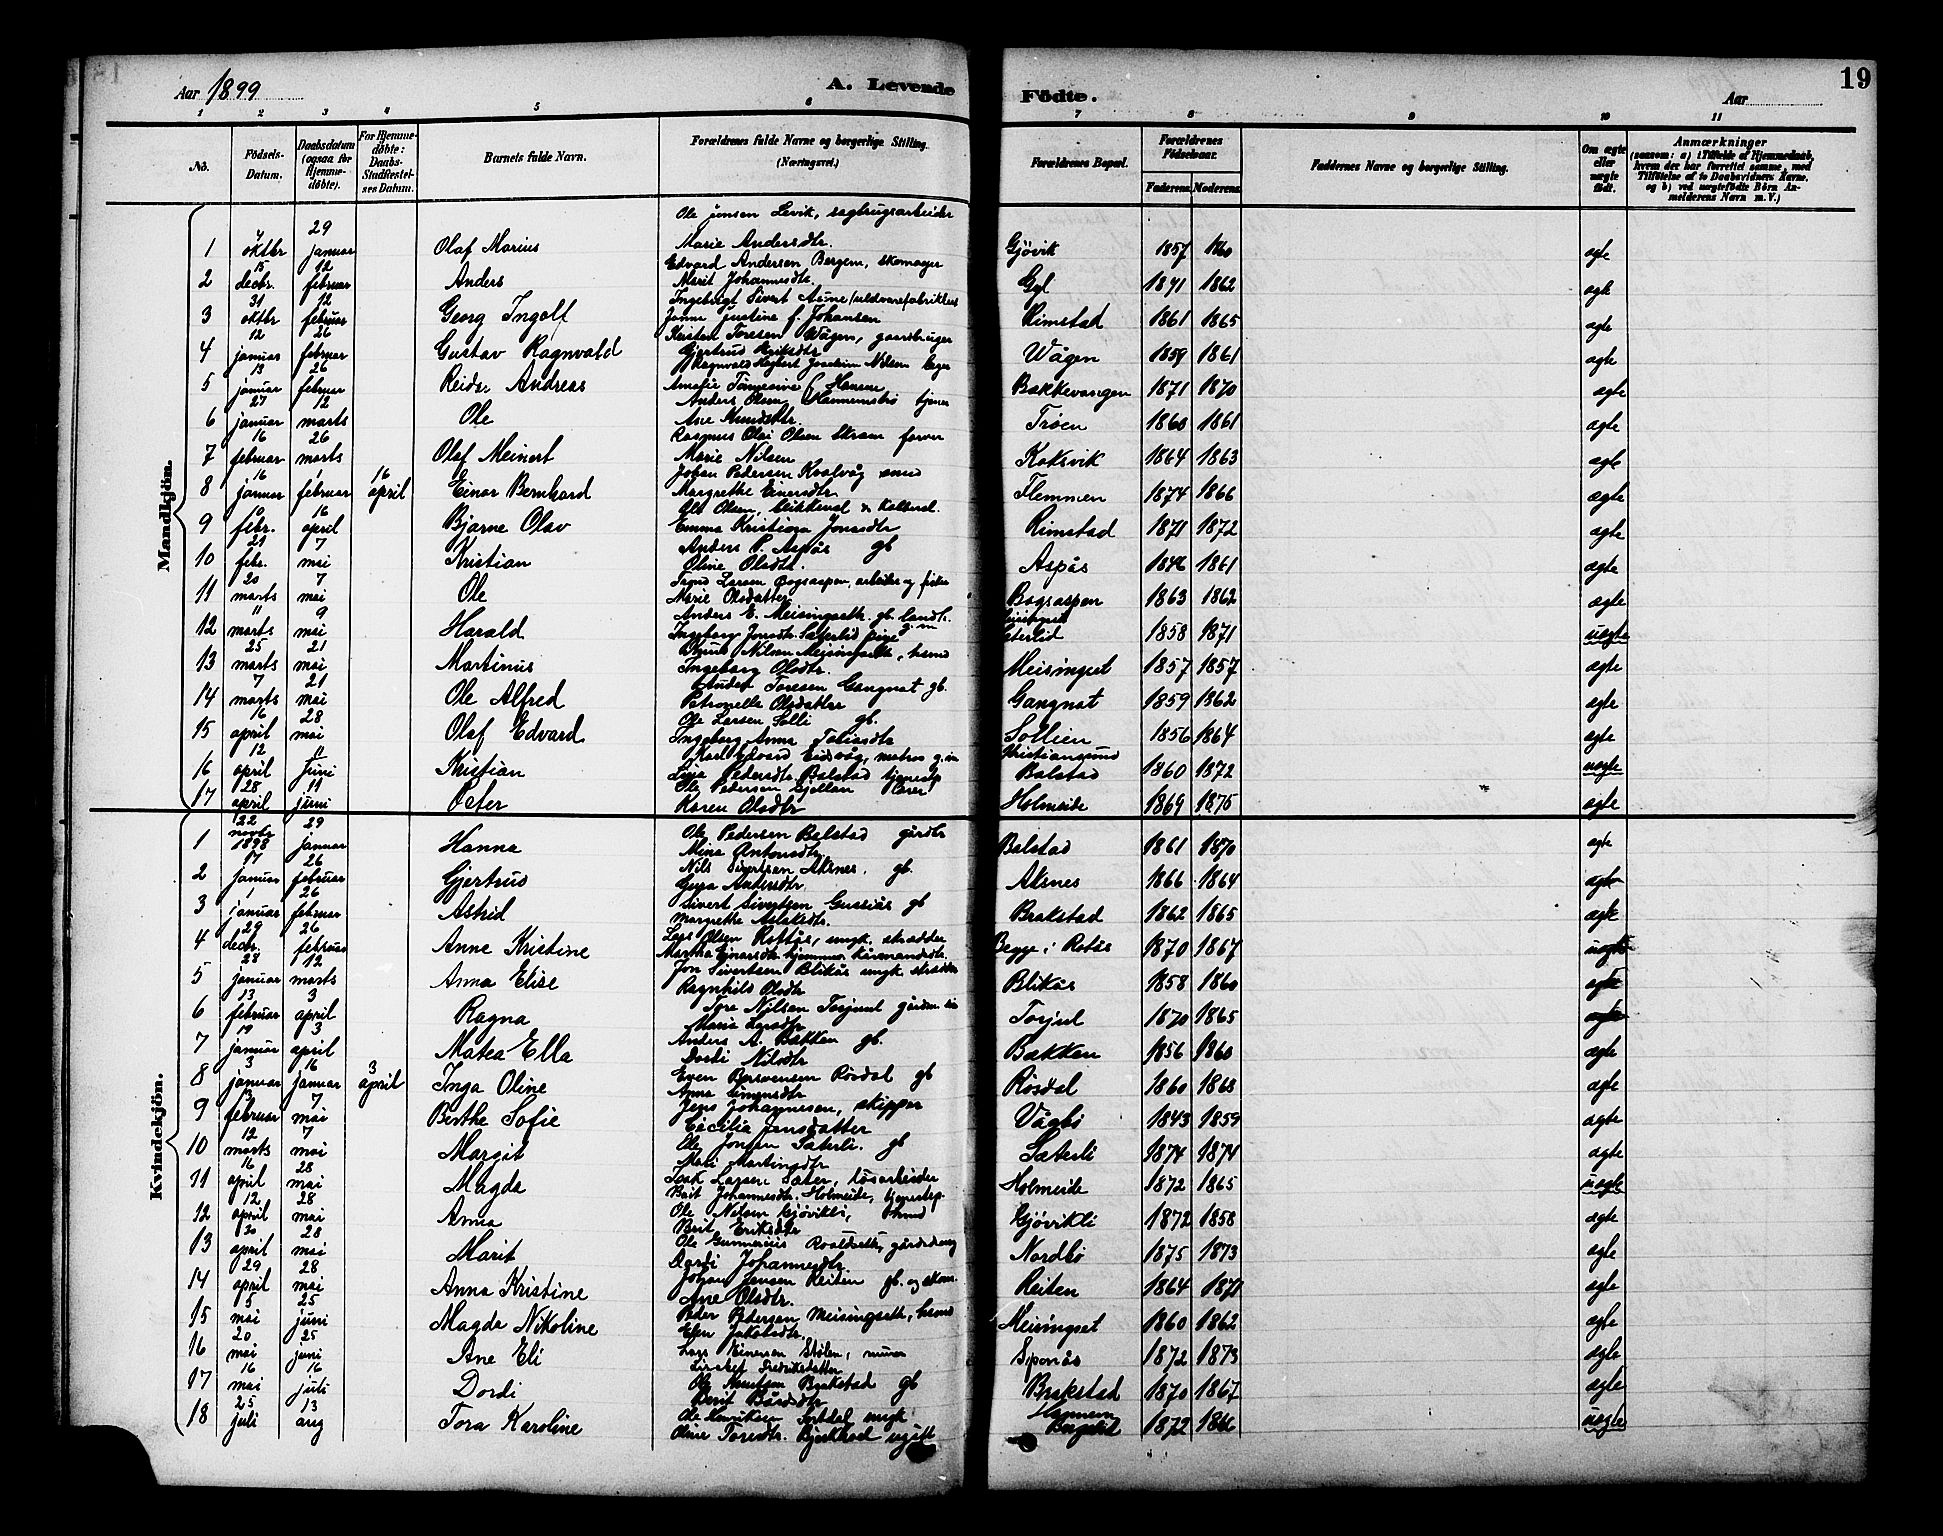 Aar 1899 A. Levende Födte. Aar 19
1 2 3 4 5 6 7 8 9 10 11
No. Födsels-Datum. Daabsdatum (ogsaa for Hjemmedöbte). For Hjemmedöbte: Daabs-Stadfæstelses Datum. Barnets fulde Navn. Forældrenes fulde Navne og borgerlige Stilling. (Næringsvei.) Forældrenes Bopæl. Forældrenes Födselsaar. Faderens. Moderens. Faddernes Navne og borgerlige Stilling. Om ægte eller uægte födt. Anmærkninger (saasom: a) i Tilfælde af Hjemmedaab, hvem der har forrettet samme, med Tilföielse af to Daabsvidners Navne, og b) ved uægtefödte Börn Anmelderens Navn m. V.)
Mandkjön.
Ole Jensen Levik, sagbrugsarbeider
1 oktbr 29 januar Olaf Marius Marie Andersdtr. Gjövik 1857 1860 ægte
Edvard Andersen Bergem, skomager
2 15 decbr. 12 februar Anders Marit Johannesdtr. Gyl 1871 1862 ægte
Ingebrigt Sivert Aune
3 31 oktbr 12 februar Georg Ingolf Janne Justine f. Johansen Rimstad 1861 1865 ægte
Kristen Toresen Wågen, gaardbruger
4 12 januar 26 februar Gustav Ragnvald Gjertrud Eriksdtr Wågen 1859 1861 ægte
Ragnvald Joachim Nilsen
5 13 januar 26 februar Reidar Andreas f. Hansen Bakkevangen 1871 1870 ægte
Anders Olsen
6 27 januar 12 marts Ole Ane Knudsdtr. Tröen 1860 1861 ægte
Rasmus Olai Olsen Strøm farver
7 16 februar 26 marts Olaf Meinert Marie Nilsen Koksvik 1864 1863 ægte
Johan Pedersen Kvalvåg smed
8 16 januar 1 februar 16 april Einar Bernhard Margrethe Einersdtr. Flemmen 1874 1866 ægte
Olsen,
9 10 febr. 16 april Bjarne Olav Emma Kristiana Jonasdtr Rimstad 1871 1872 ægte
Anders P. Aspås gb
10 21 febr. 7 mai Kristian Oline Olsdtr. Aspås 1861 ægte
Larsen Bogaaspen, arbeider og fisker
11 20 marts 7 mai Ole Marie Olsdatter Bogaaspen 1863 1862 ægte
Anders E. Meisingseth gb. landh.
12 11 marts 9 mai Harald Ingeborg Jonsdtr. Sæterlid pige Sæterlid 1858 1871 uægte
Nilsen Meisingseth, husmd
13 25 marts 21 mai Martinus Ingeborg Olsdtr. Meisingset 1857 1857 ægte
Toresen Gangnat gb.
14 7 marts 21 mai Ole Alfred Petronelle Olsdatter Gangnat 1859 1862 ægte
Ole Larsen Solli gb.
15 16 april 28 mai Olaf Edvard Ingeborg Anna Tobiasdtr Sollien 1856 1864 ægte
Karl Edvard Eidsvåg, matros Kristiansund
16 12 april 11 juni Kristian Pedersdtr. Balstad Balstad 1860 1872 uægte
Ole Pedersen
17 28 april 11 juni Peter Karen Olsdtr Holmeide 1869 1875 ægte
Kvindekjön.
Ole Pedersen Balstad gårdbr
1 22 novbr 1898 29 januar Hanna Mina Antonsdtr. Balstad 1861 1870 ægte
Nils Sivertsen Aksnes. gb.
2 17 januar 26 februar Gjertrud Andersdtr Aksnes 1866 1864 ægte
Sivert Sivertsen Gussiås gb
3 1 januar 26 februar Astrid Margrethe Aslaksdtr. Brakstad 1862 1865 ægte
Lars Olsen Rottås, ungk. skrædder
4 29 decbr. 26 februar Anne Kristine Martha Einarsdtr Begge i Rotås 1870 1867 uægte
Jon Sivertsen Blikås ungk skrædder
5 28 januar 12 marts Anna Elise Ragnhild Olsdtr Blikås 1858 1860 ægte
Tore Nilsen Torjul
6 13 februar 3 april Ragna Marie Larsdtr Torjul 1870 1865 ægte
Anders A. Bakken gb.
7 19 januar 3 april Matea Ella Dordi Nilsdtr Bakken 1856 1860 ægte
Even Rösdal gb
8 3 januar 16 januar 3 april Inga Oline Anna Simensdtr Rösdal 1860 1868 ægte
Jens Johannesen, skipper
9 13 februar 7 mai Berthe Sofie Cecilia Jensdatter Vågbö 1843 1859 ægte
Ole Jonsen Sæterli. gb
10 12 marts 7 mai Margit Mari Martinsdtr Sæterli 1874 1874 ægte
Isak Larsen Sæter, lösarbeider
11 16 april 28 mai Magda Brit Johannesdtr. Holmeide, tjenestep. Holmeide 1872 1865 uægte
Ole Nilsen Gjövikli,
12 12 april 28 mai Anna Brit Eriksdtr Gjövikli 1872 1858 ægte
Ole Gunnerius Roaldseth, gårdsdreng
13 30 april 28 mai Marit Dordi Johannesdtr. Nordbö 1875 1873 ægte
Johan Jensen Reiten gb. og skom.
14 29 april 28 mai Anna Kristine Ane Olsdtr. Reiten 1864 1871 ægte
Peder Pedersen Meisingseth, husmd
15 5 mai 25 juni Magda Nikoline Elen Jakobsdtr. Meisingset 1860 1862 ægte
Lars Einersen Stölen, murer
16 20 mai 25 juni Ane Eli Lisabet Fredriksdatter Siponås 1872 1873 ægte
Ole Knutsen Brakstad gb
17 16 mai 16 juli Dordi Berit Bårdsdtr Brakstad 1870 1867 ægte
Ole Henriksen ungk
18 25 juli 13 aug Tora Karoline Oline Toresdtr. ugift 1872 1866 uægte